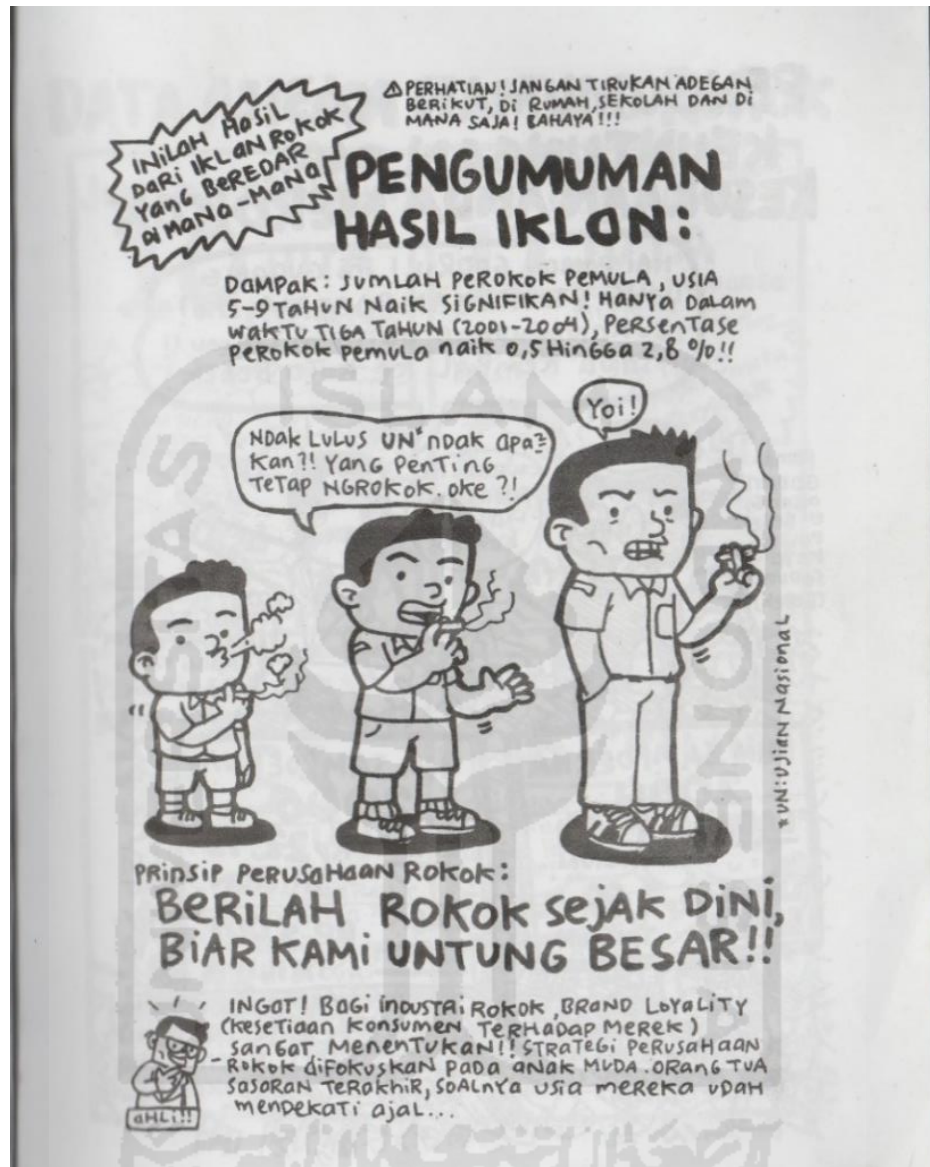 INILAH HASIL
DARI IKLAN ROKOK
YANG BEREDAR
DI MANA-MANA
⚠PERHATIAN! JANGAN TIRUKAN ADEGAN
BERIKUT, DI RUMAH, SEKOLAH DAN DI
MANA SAJA! BAHAYA!!!
PENGUMUMAN
HASIL IKLAN:
DAMPAK: JUMLAH PEROKOK PEMULA, USIA
5-9 TAHUN NAIK SIGNIFIKAN! HANYA DALAM
WAKTU TIGA TAHUN (2001-2004), PERSENTASE
PEROKOK PEMULA NAIK 0,5 HINGGA 2,8 %!!
Yoi!
NDAK LULUS UN* NDAK APA²
KAN?! YANG PENTING
TETAP NGROKOK. OKE ?!
*UN: UJIAN NASIONAL
PRINSIP PERUSAHAAN ROKOK:
BERILAH ROKOK SEJAK DINI,
BIAR KAMI UNTUNG BESAR!!
INGAT! BAGI INDUSTRI ROKOK, BRAND LOYALITY
(KESETIAAN KONSUMEN TERHADAP MEREK)
SANGAT MENENTUKAN!! STRATEGI PERUSAHAAN
ROKOK DIFOKUSKAN PADA ANAK MUDA. ORANG TUA
SASARAN TERAKHIR, SOALNYA USIA MEREKA UDAH
MENDEKATI AJAL...
AHLI!!
UNIVERSITAS
ISLAM
INDONESIA